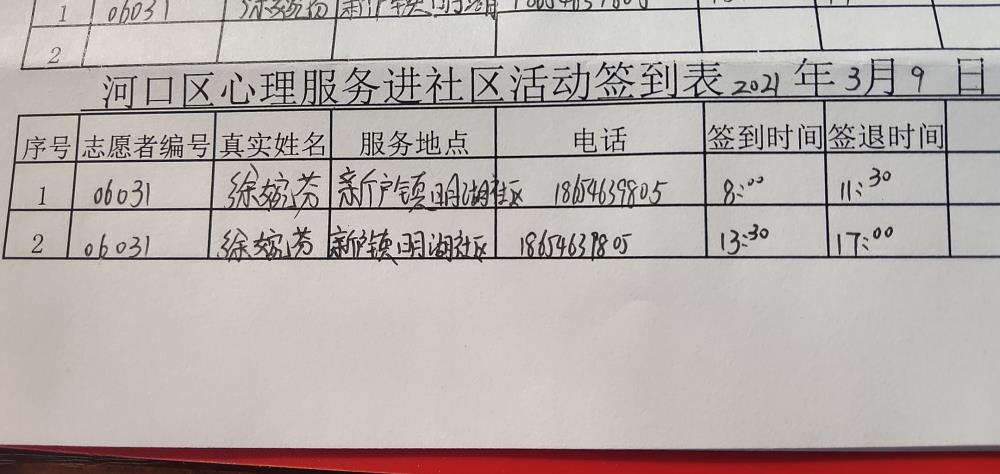 1 06031
2
河口区心理服务进社区活动签到表 2021 年 3月 9 日
序号 志愿者编号 真实姓名 服务地点 电话 签到时间 签退时间
1 06031 徐婉芬 新户镇明湖社区 18654639805 8:00 11:30
2 06031 徐婉芬 新户镇明湖社区 18654639805 13:30 17:00